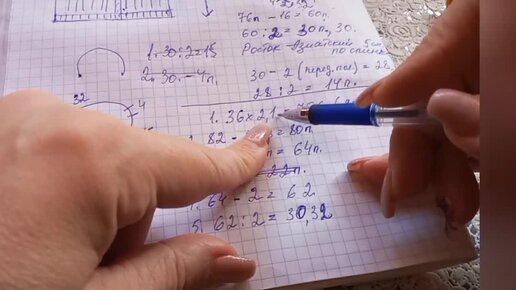 76п - 16 = 60п.
60 : 2 = 30п, 30.
1. 30 : 2 = 15
Росток - Азиатский 5см
по спинке
2. 30. - 4п.
30 - 2 (перед. пол) = 28
28 : 2 = 14п.
32
4
1. 36 x 2,1
82 - = 80п.
п = 64п.
64 - 2 = 62
5. 62 : 2 = 30,32